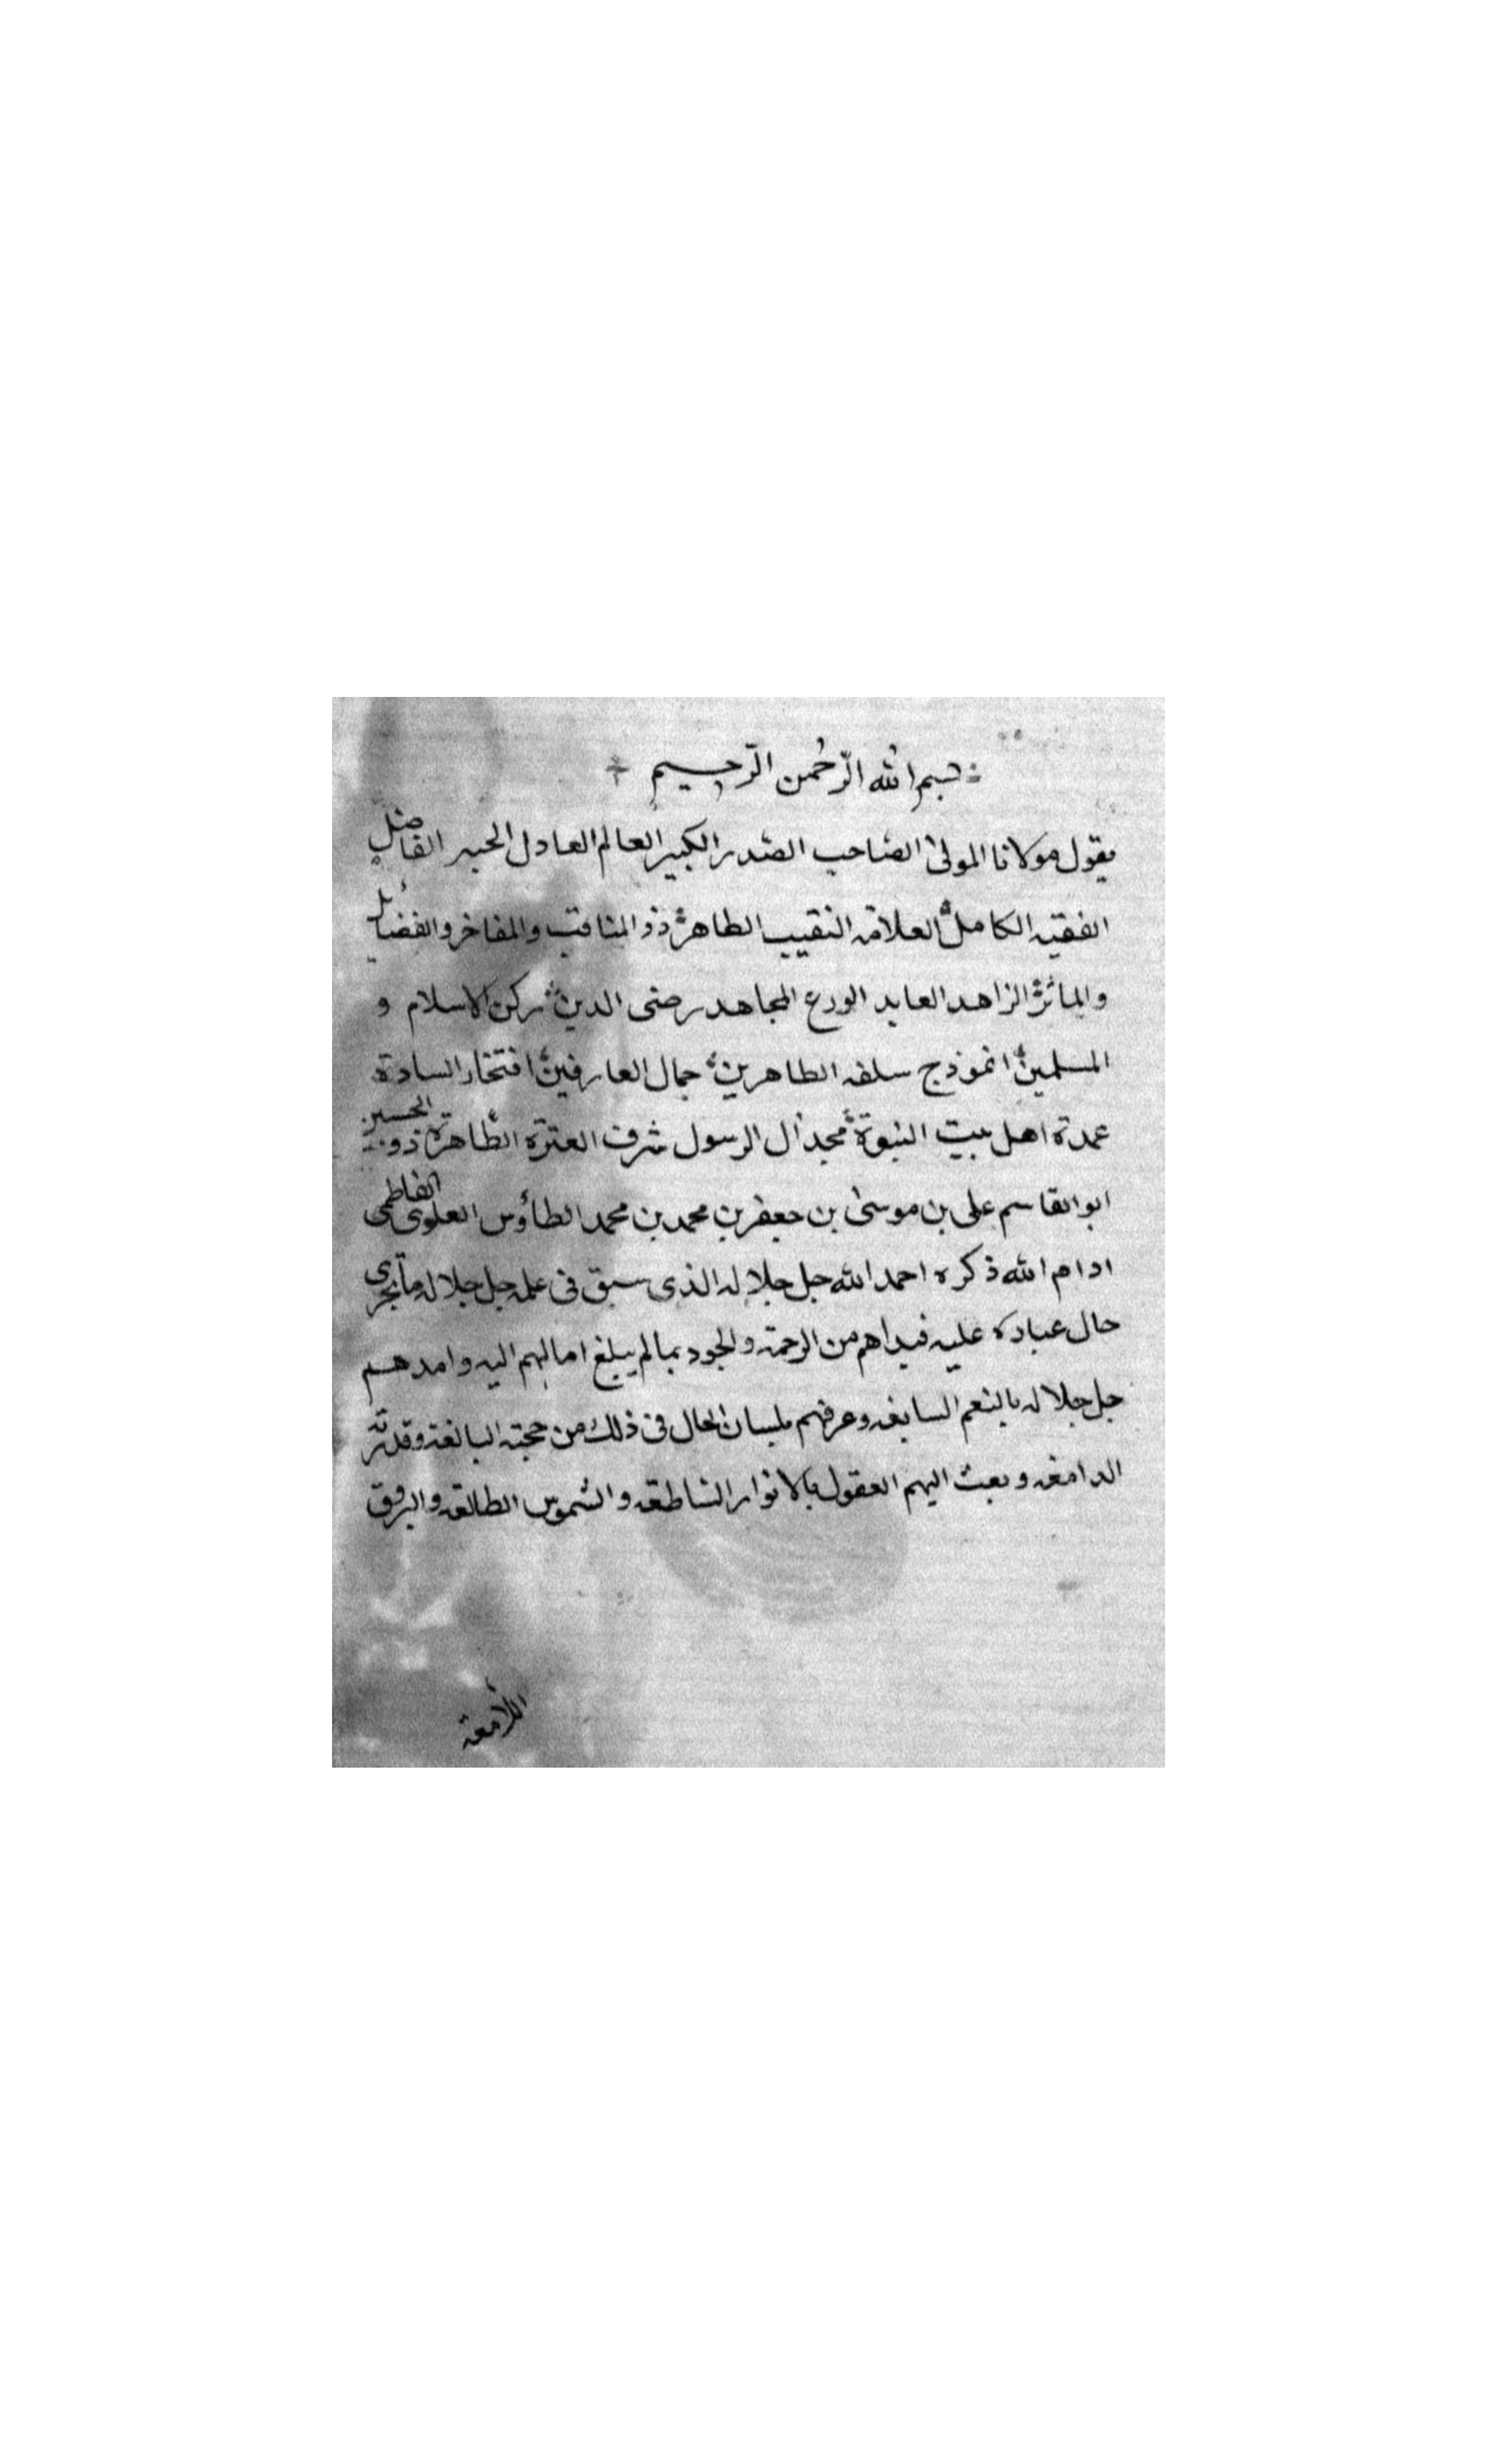 بسم الله الرّحمن الرّحيم
يقول مولانا المولى الصّاحب الصّدر الكبير العالم العادل الحبر الفاضل
الفقيه الكامل العلامّه النقيب الطاهر ذو المناقب والمفاخر والفضائل
والماثر الزاهد العابد الورع المجاهد رضى الدين ركن الاسلام و
المسلمين انموذج سلفه الطاهرين جمال العارفين افتخار السادة
عمدة اهل بيت النبوة مجد آل الرسول شرف العترة الطّاهرة ذو الحسبين
ابو القاسم على بن موسى بن جعفر بن محمد بن محمد الطاؤس العلوى الفاطمى
ادام الله ذكره احمد الله جل جلاله الذى سبق فى علمه جل جلاله ما تجرى
حال عباده عليه فبداهم من الرحمة والجود بما لم يبلغ امالهم اليه وامدهم
جل جلاله بالنعم السابغه وعرفهم بلسان الحال فى ذلك من حجته البالغة وقدرته
الدامغه وبعث اليهم العقول بالانوار الساطعه والشموس الطالعه والبروق
اللّامعة